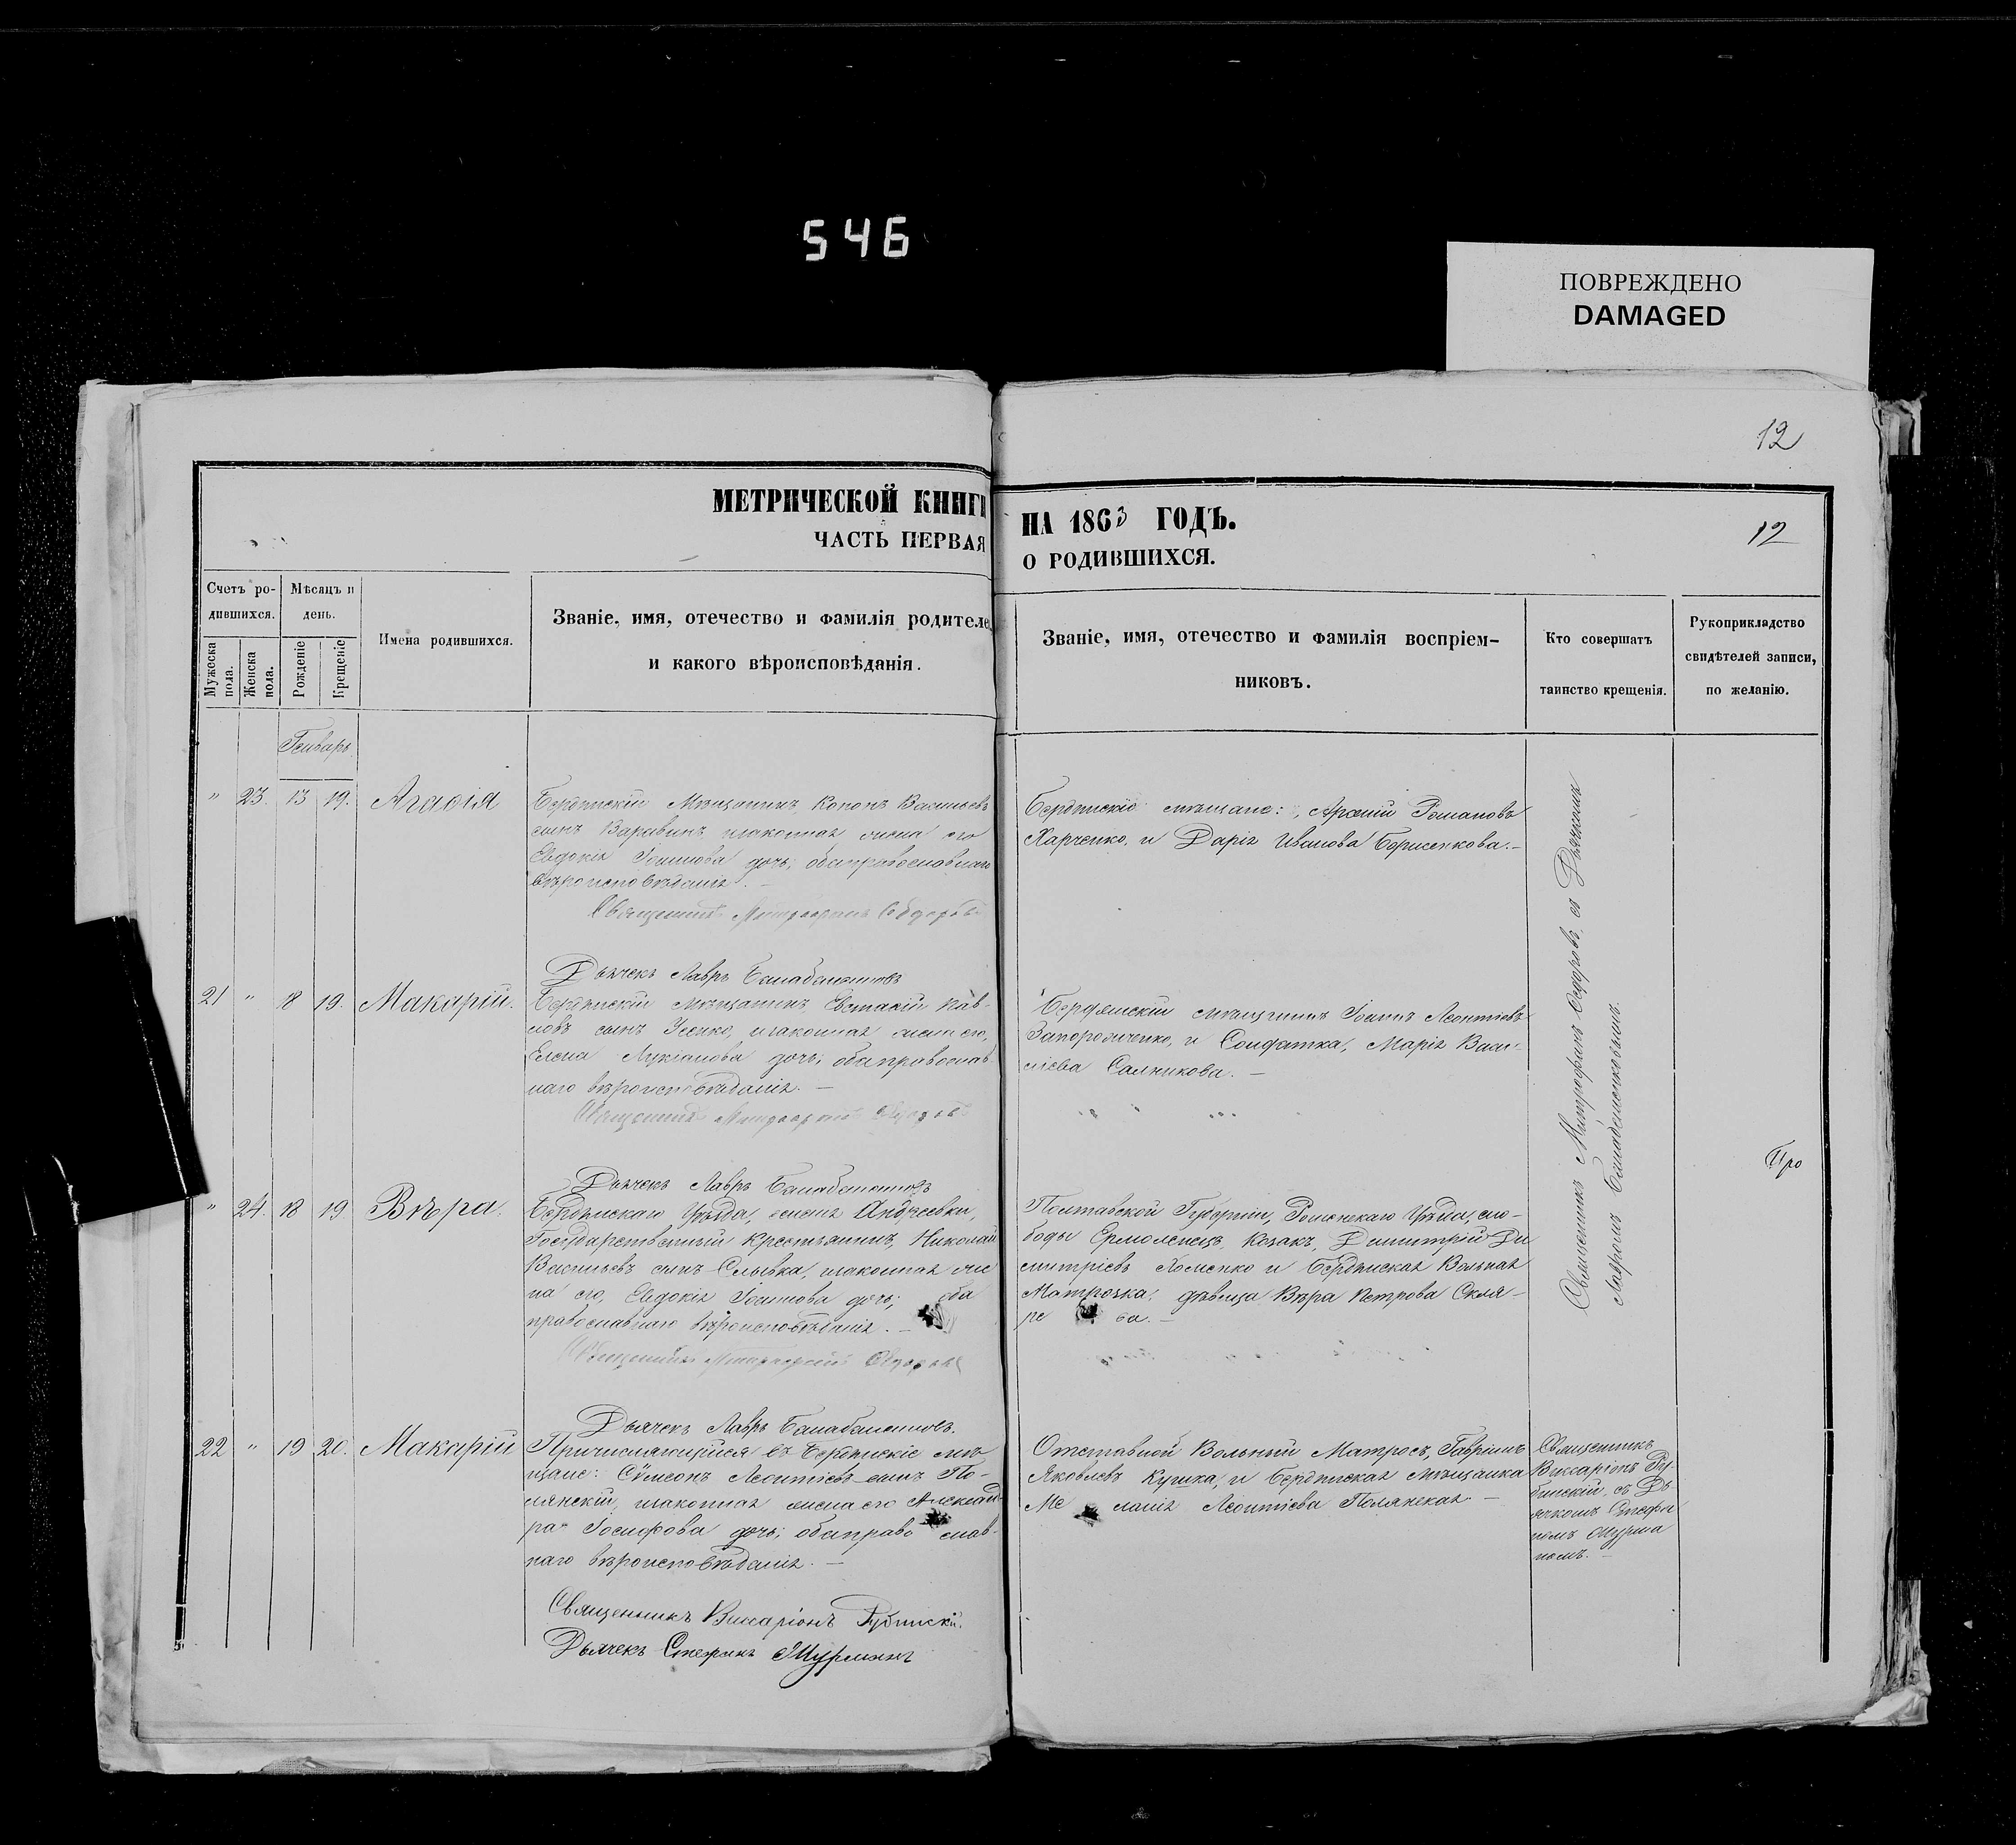 546
ПОВРЕЖДЕНО
DAMAGED
12
МЕТРИЧЕСКОЙ КНИГИ
ЧАСТЬ ПЕРВАЯ
НА 1863 ГОДЪ.
О РОДИВШИХСЯ.
12
Счетъ ро-
дившихся.
Мужеска
пола.
Женска
пола.
Мѣсяцъ и
день.
Рожденіе
Крещеніе
Имена родившихся.
Званіе, имя, отечество и фамилія родителе
и какого вѣроисповѣданія.
Званіе, имя, отечество и фамилія воспріем-
никовъ.
Кто совершатъ
таинство крещенія.
Рукоприкладство
свидѣтелей записи,
по желанію.
Генварь.
" 23. 13 19. Агафія
Бердянскій Мѣщанинъ Кононъ Васильевъ
сынъ Варавинъ, изаконная жена его
Евдокія Іоаннова дочь; обаправославнаго
вѣроисповѣданія. —
Священникъ Митрофанъ
Бердянскіе мѣщане: Арсеній Романовъ
Харченко, и Дарія Иванова Борисенкова. —
Дьячекъ Лавръ
21 " 18 19. Макарій.
Бердянскій Мѣщанинъ, Евстафій Пав-
ловъ сынъ Усенко, изаконная жена его,
Елена Лукіанова дочь; обаправослав-
наго вѣроисповѣданія. —
Священникъ Митрофанъ
Бердянскій мѣщанинъ Іоаннъ Леонтіевъ
Запорожченко, и Солдатка, Марія Васи-
ліева Салникова. —
Дьячекъ Лавръ
" 24. 18 19 Вѣра.
Бердянскаго Уѣзда, селенія Андреевки,
Государственный Крестьянинъ, Николай
Васильевъ сынъ Сливка, изаконная же
на его, Евдокія Іоаннова дочь; оба
православнаго вѣроисповѣданія. —
Священникъ Митрофанъ
Полтавской Губерніи, Роменскаго Уѣзда, сло-
боды Козакъ, Димитрій Ди
митріевъ и Бердянская Вольная
Матроска: дѣвица Вѣра Петрова Скля-
ре ва. —
Священникъ Митрофанъ съ Дьячкомъ
Лавромъ
Про
Дьячекъ Лавръ
22 " 19 20. Макарій
Причисляющійся въ Бердянскіе мѣ
щане: Сѵмеонъ Леонтіевъ сынъ По-
лянскій, изаконная жена его Александ-
ра Іосифова дочь; обаправо слав-
наго вѣроисповѣданія. —
Священникъ Виссаріонъ
Дьячекъ Стефанъ
Отставной Вольный Матросъ, Гавріилъ
Яковлевъ Кушка, и Бердянская мѣщанка
Ме ланія Леонтіева Полянская. —
Священникъ
Виссаріонъ
съ Дь
ячкомъ Стефа
номъ